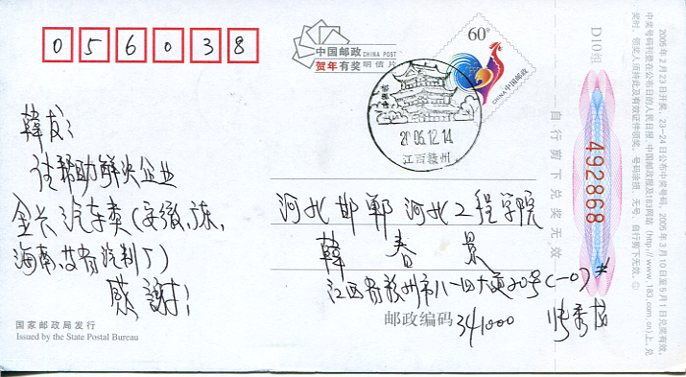 056038
中国邮政 CHINA POST
贺年有奖 明信片
60分
中国邮政 CHINA
2005.12.14
江西赣州
D10组
2005年2月23日开奖，23—24日公布中奖号码。2005年3月10日至5月1日兑奖有效。
中奖号码刊登在公布日的人民日报、中国邮政报及183网站(http://www.183.com.cn)上。兑
奖时，领奖人须持此及有效证件领奖。号码涂损、无号、自行剪下兑奖无效。
492868
自行剪下兑奖无效
韩友：
请帮助解决企业
金卡汽车类(安徽、
海南、 汽制厂)
感謝！
河北邯郸 河北工程学院
韓春景
江西省赣州市八一四大道20号(一0)#
邮政编码 341000
国家邮政局发行
Issued by the State Postal Bureau